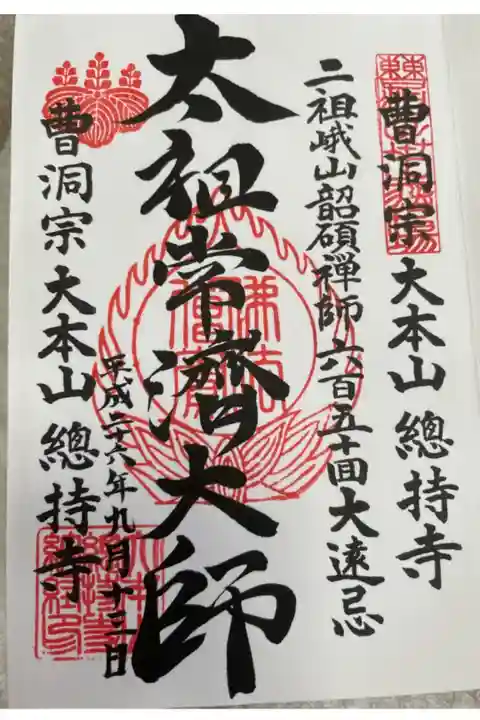 曹洞宗 大本山 總持寺
二祖峨山韶碩禅師六百五十回大遠忌
太祖常濟大師
平成二十六年九月十三日
曹洞宗 大本山 總持寺